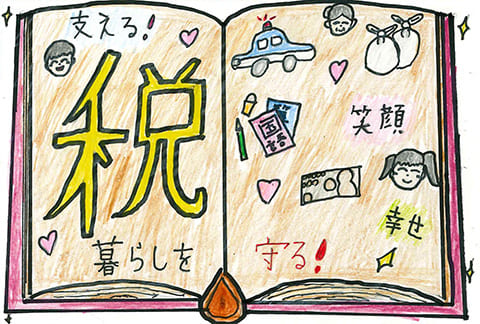 支える!
税
暮らしを
守る!
算
国語
笑顔
幸せ